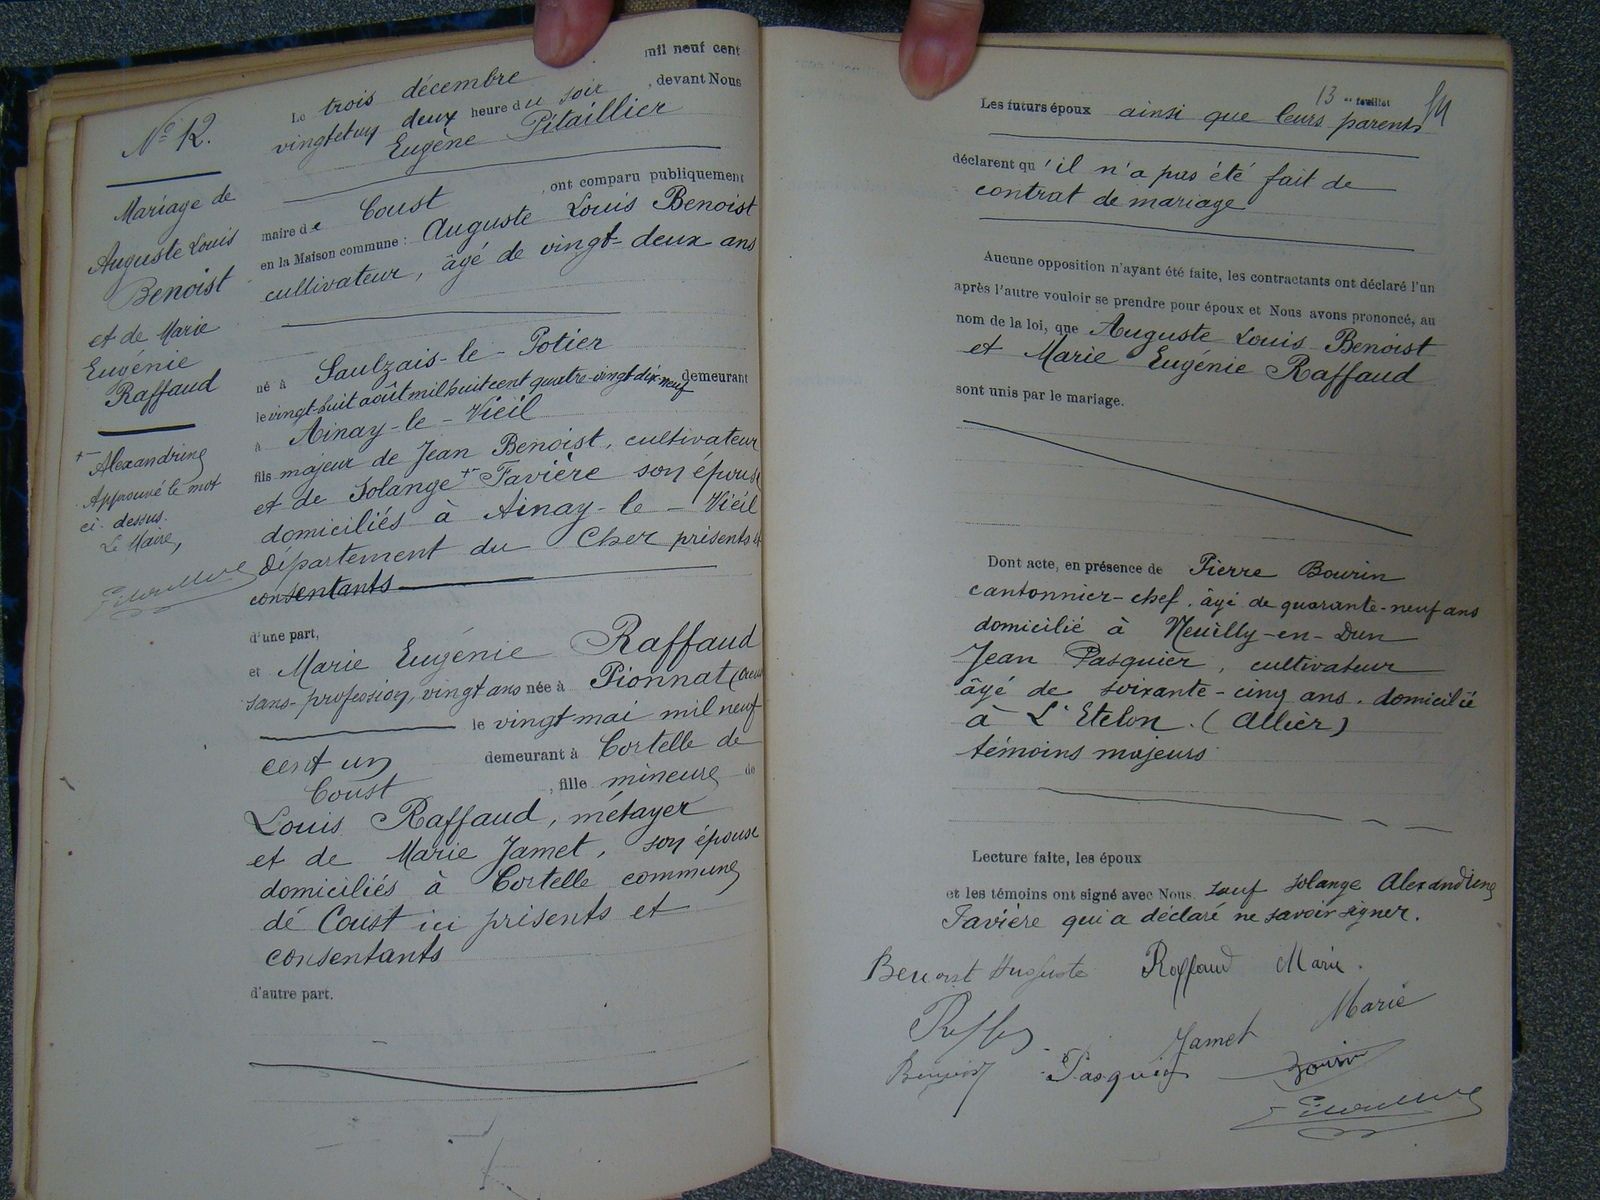 N° 12.
Mariage de
Auguste Louis
Benoist
et de Marie
Eugénie
Raffaud
+ Alexandrine
Approuvé le mot
ci-dessus.
Le Maire,
Le trois décembre mil neuf cent
vingt et un deux heure du soir, devant Nous
Eugène Pitaillier
maire de Coust, ont comparu publiquement
en la Maison commune : Auguste Louis Benoist
cultivateur, âgé de vingt-deux ans
né à Saulzais-le-Potier
le vingt-huit août mil huit cent quatre-vingt-dix-neuf demeurant
à Ainay-le-Vieil
fils majeur de Jean Benoist, cultivateur
et de Solange + Favière son épouse
domiciliés à Ainay-le-Vieil
département du Cher présents et
consentants
d'une part,
et Marie Eugénie Raffaud
sans profession, vingt ans née à Pionnat (Creuse
le vingt mai mil neuf
cent un demeurant à Cortelle de
Coust, fille mineure de
Louis Raffaud, métayer
et de Marie Jamet, son épouse
domiciliés à Cortelle commune
de Coust ici présents et
consentants
d'autre part.
13 me feuillet
Les futurs époux ainsi que leurs parents
déclarent qu'il n'a pas été fait de
contrat de mariage
Aucune opposition n'ayant été faite, les contractants ont déclaré l'un
après l'autre vouloir se prendre pour époux et Nous avons prononcé, au
nom de la loi, que Auguste Louis Benoist
et Marie Eugénie Raffaud
sont unis par le mariage.
Dont acte, en présence de Pierre Bourin
cantonnier-chef, âgé de quarante-neuf ans
domicilié à Neuilly-en-Dun
Jean Pasquier, cultivateur
âgé de soixante-cinq ans, domicilié
à L'Etelon. (Allier)
témoins majeurs
Lecture faite, les époux
et les témoins ont signé avec Nous. sauf Solange Alexandrine
Favière qui a déclaré ne savoir signer.
Benoist Auguste Raffaud Marie.
Jamet Marie
Benoist Pasquier Bourin